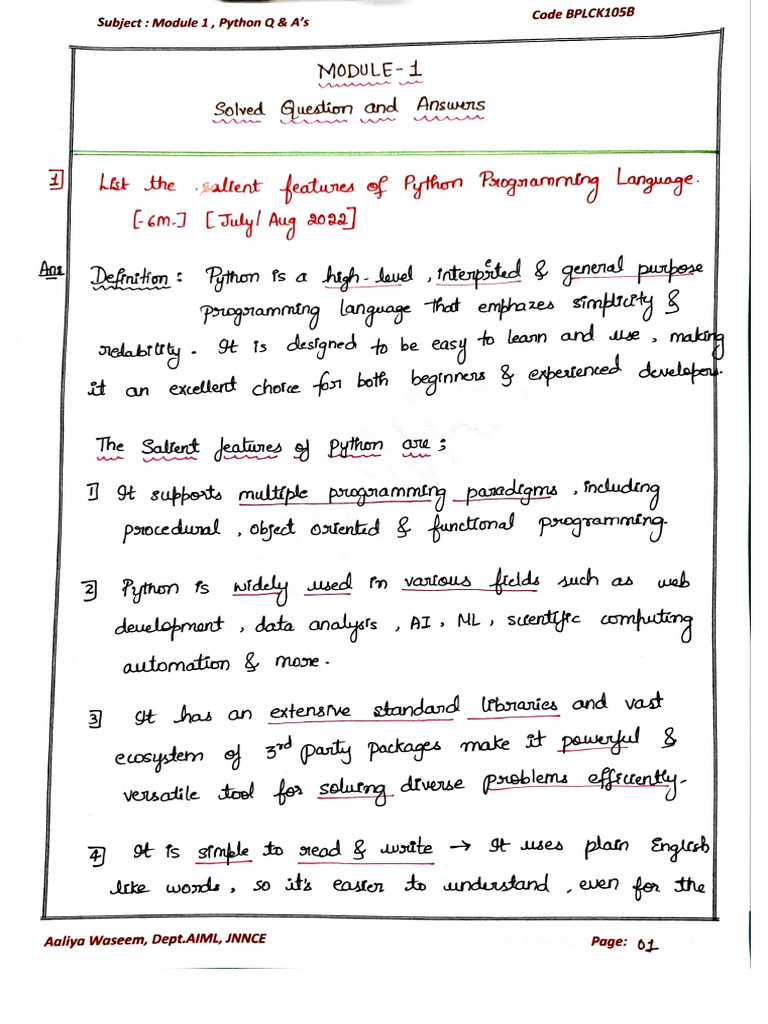 Subject : Module 1 , Python Q & A's
Code BPLCK105B
MODULE-1
Solved Question and Answers
1] List the salient features of Python Programming Language.
[-6M-] [July/Aug 2022]
Ans Definition : Python is a high-level, interprited & general purpose
programming language that emphazes simplicity &
relability. It is designed to be easy to learn and use, making
it an excellent choice for both beginners & experienced developers.
The Salient features of Python are ;
1] It supports multiple programming paradigms, including
procedural, object oriented & functional programming.
2] Python is widely used in various fields such as web
development, data analysis, AI, ML, scientific computing
automation & more.
3] It has an extensive standard libraries and vast
ecosystem of 3rd party packages make it powerful &
versatile tool for solving diverse problems efficiently.
4] It is simple to read & write → It uses plain English
like words, so it's easier to understand, even for the
Aaliya Waseem, Dept.AIML, JNNCE
Page: 01